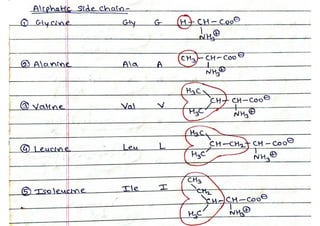 Aliphatic side chain-
① Glycine Gly G H-CH-COO⊖
NH₃⊕
② Alanine Ala A CH₃-CH-COO⊖
NH₃⊕
③ Valine Val V H₃C
CH-CH-COO⊖
H₃C NH₃⊕
④ Leucine Leu L H₃C
CH-CH₂-CH-COO⊖
H₃C NH₃⊕
⑤ Isoleucine Ile I CH₃
CH₂
CH-CH-COO⊖
H₃C NH₃⊕